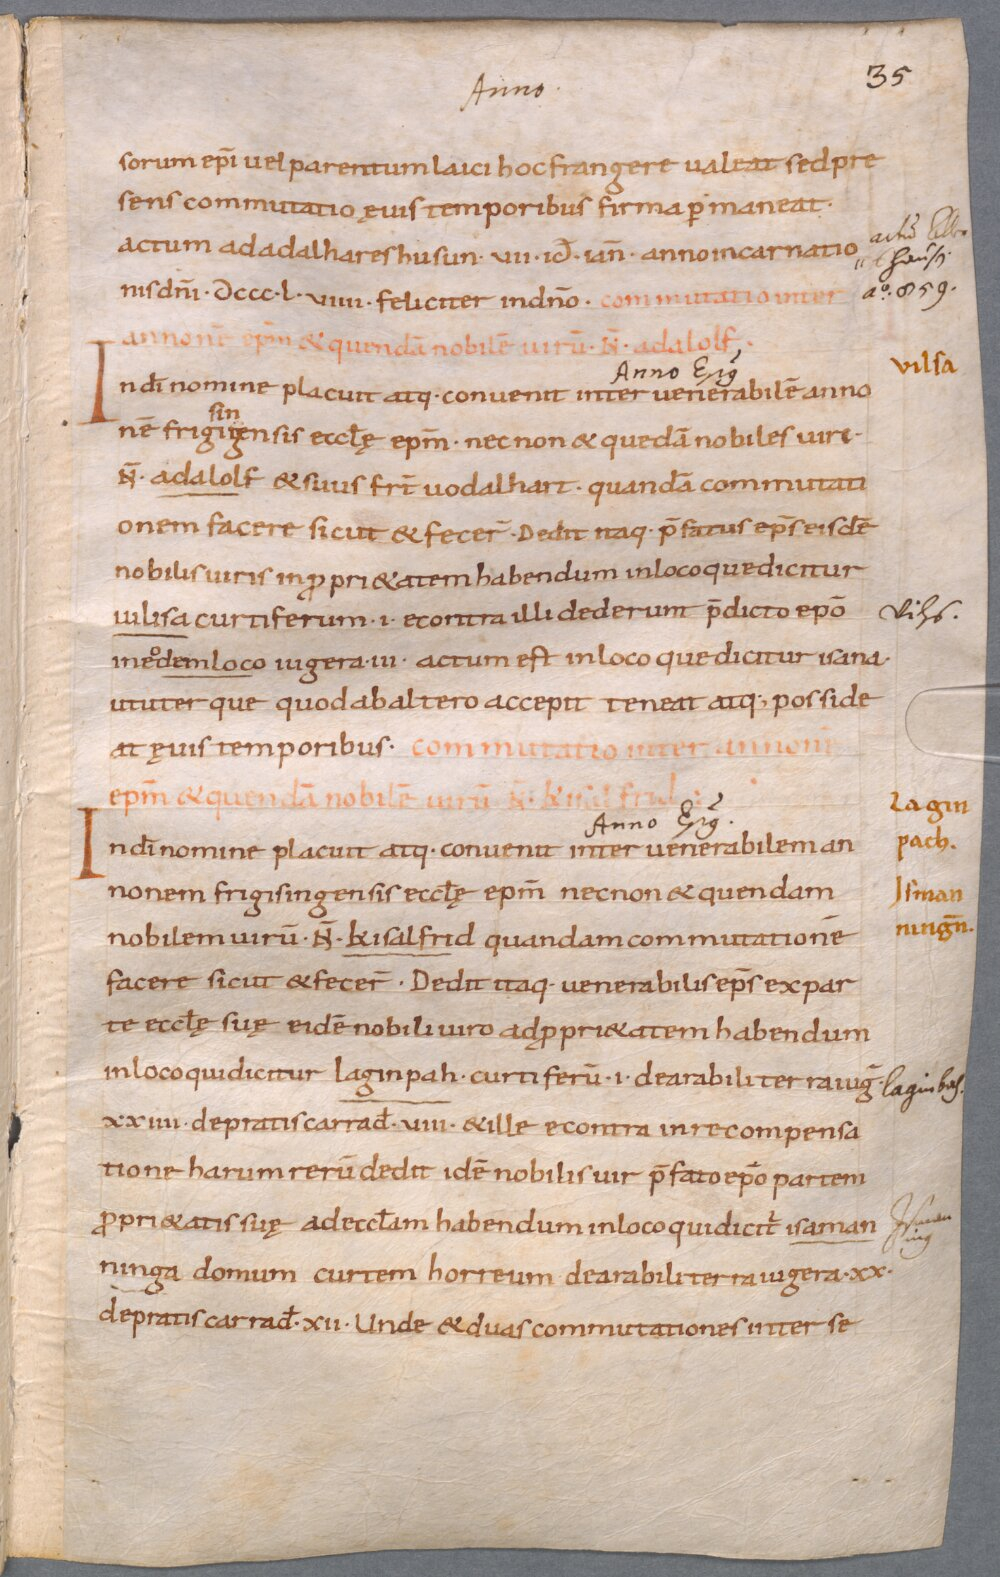 35
Anno
sorum ep̄i vel parentum laici hoc frangere valeat sed pre
sens commutatio ęvis temporibus firma p̄maneat·
actum ad adalhareshusun· vii· id̄· ian̄· anno incarnatio
nis dn̄i· dccc·l· viiii· feliciter in dn̄o· commutatio inter
a°· 859·
annonē ep̄m & quendā nobilē virū· N̄· adalolf·
Vilsa
Anno Ep̄s
In dī nomine placuit atq· convenit inter venerabilē anno
sin
nē frigigensis eccl̄ę ep̄m· necnon & quedā nobiles viri·
N̄· adalolf & suus fr̄t uodalhart· quandā commutati
onem facere sicut & fecer̄· Dedit itaq· p̄fatus ep̄s eisdē
nobilis viris in ꝓpri&atem habendum in loco que dicitur
vilisa curtiferum· i· econtra illi dederunt p̄dicto ep̄o
Vihs.
in eodem loco iugera· iii· actum est in loco que dicitur isana·
ut uterque quod ab altero accepit teneat atq; posside
at ęvis temporibus· commutatio inter annonē
ep̄m & quendā nobilē virū N̄· kisalfrid·
Lagin
pach.
Anno
In dī nomine placuit atq· convenit inter venerabilem an
nonem frigisingensis eccl̄ę ep̄m necnon & quendam
Isman
ningn̄.
nobilem virū· N̄· kisalfrid quandam commutationē
facere sicut & fecer̄· Dedit itaq· venerabilis ep̄s ex par
te eccl̄ę suę eidē nobili viro ad ꝓpri&atem habendum
in loco qui dicitur laginpah· curtiferū· i· de arabili terra iug̅·
laginbah.
xxiiii· de pratis carrad̄· viii· & ille econtra in recompensa
tione harum rerū dedit idē nobilis vir p̄fato ep̄o partem
ꝓpri&atis suę ad eccl̄am habendum in loco qui dicit̄ isaman
Isman
ing
ninga domum curtem horreum de arabili terra iugera· xx·
de pratis carrad̄· xii· Unde & duas commutationes inter se